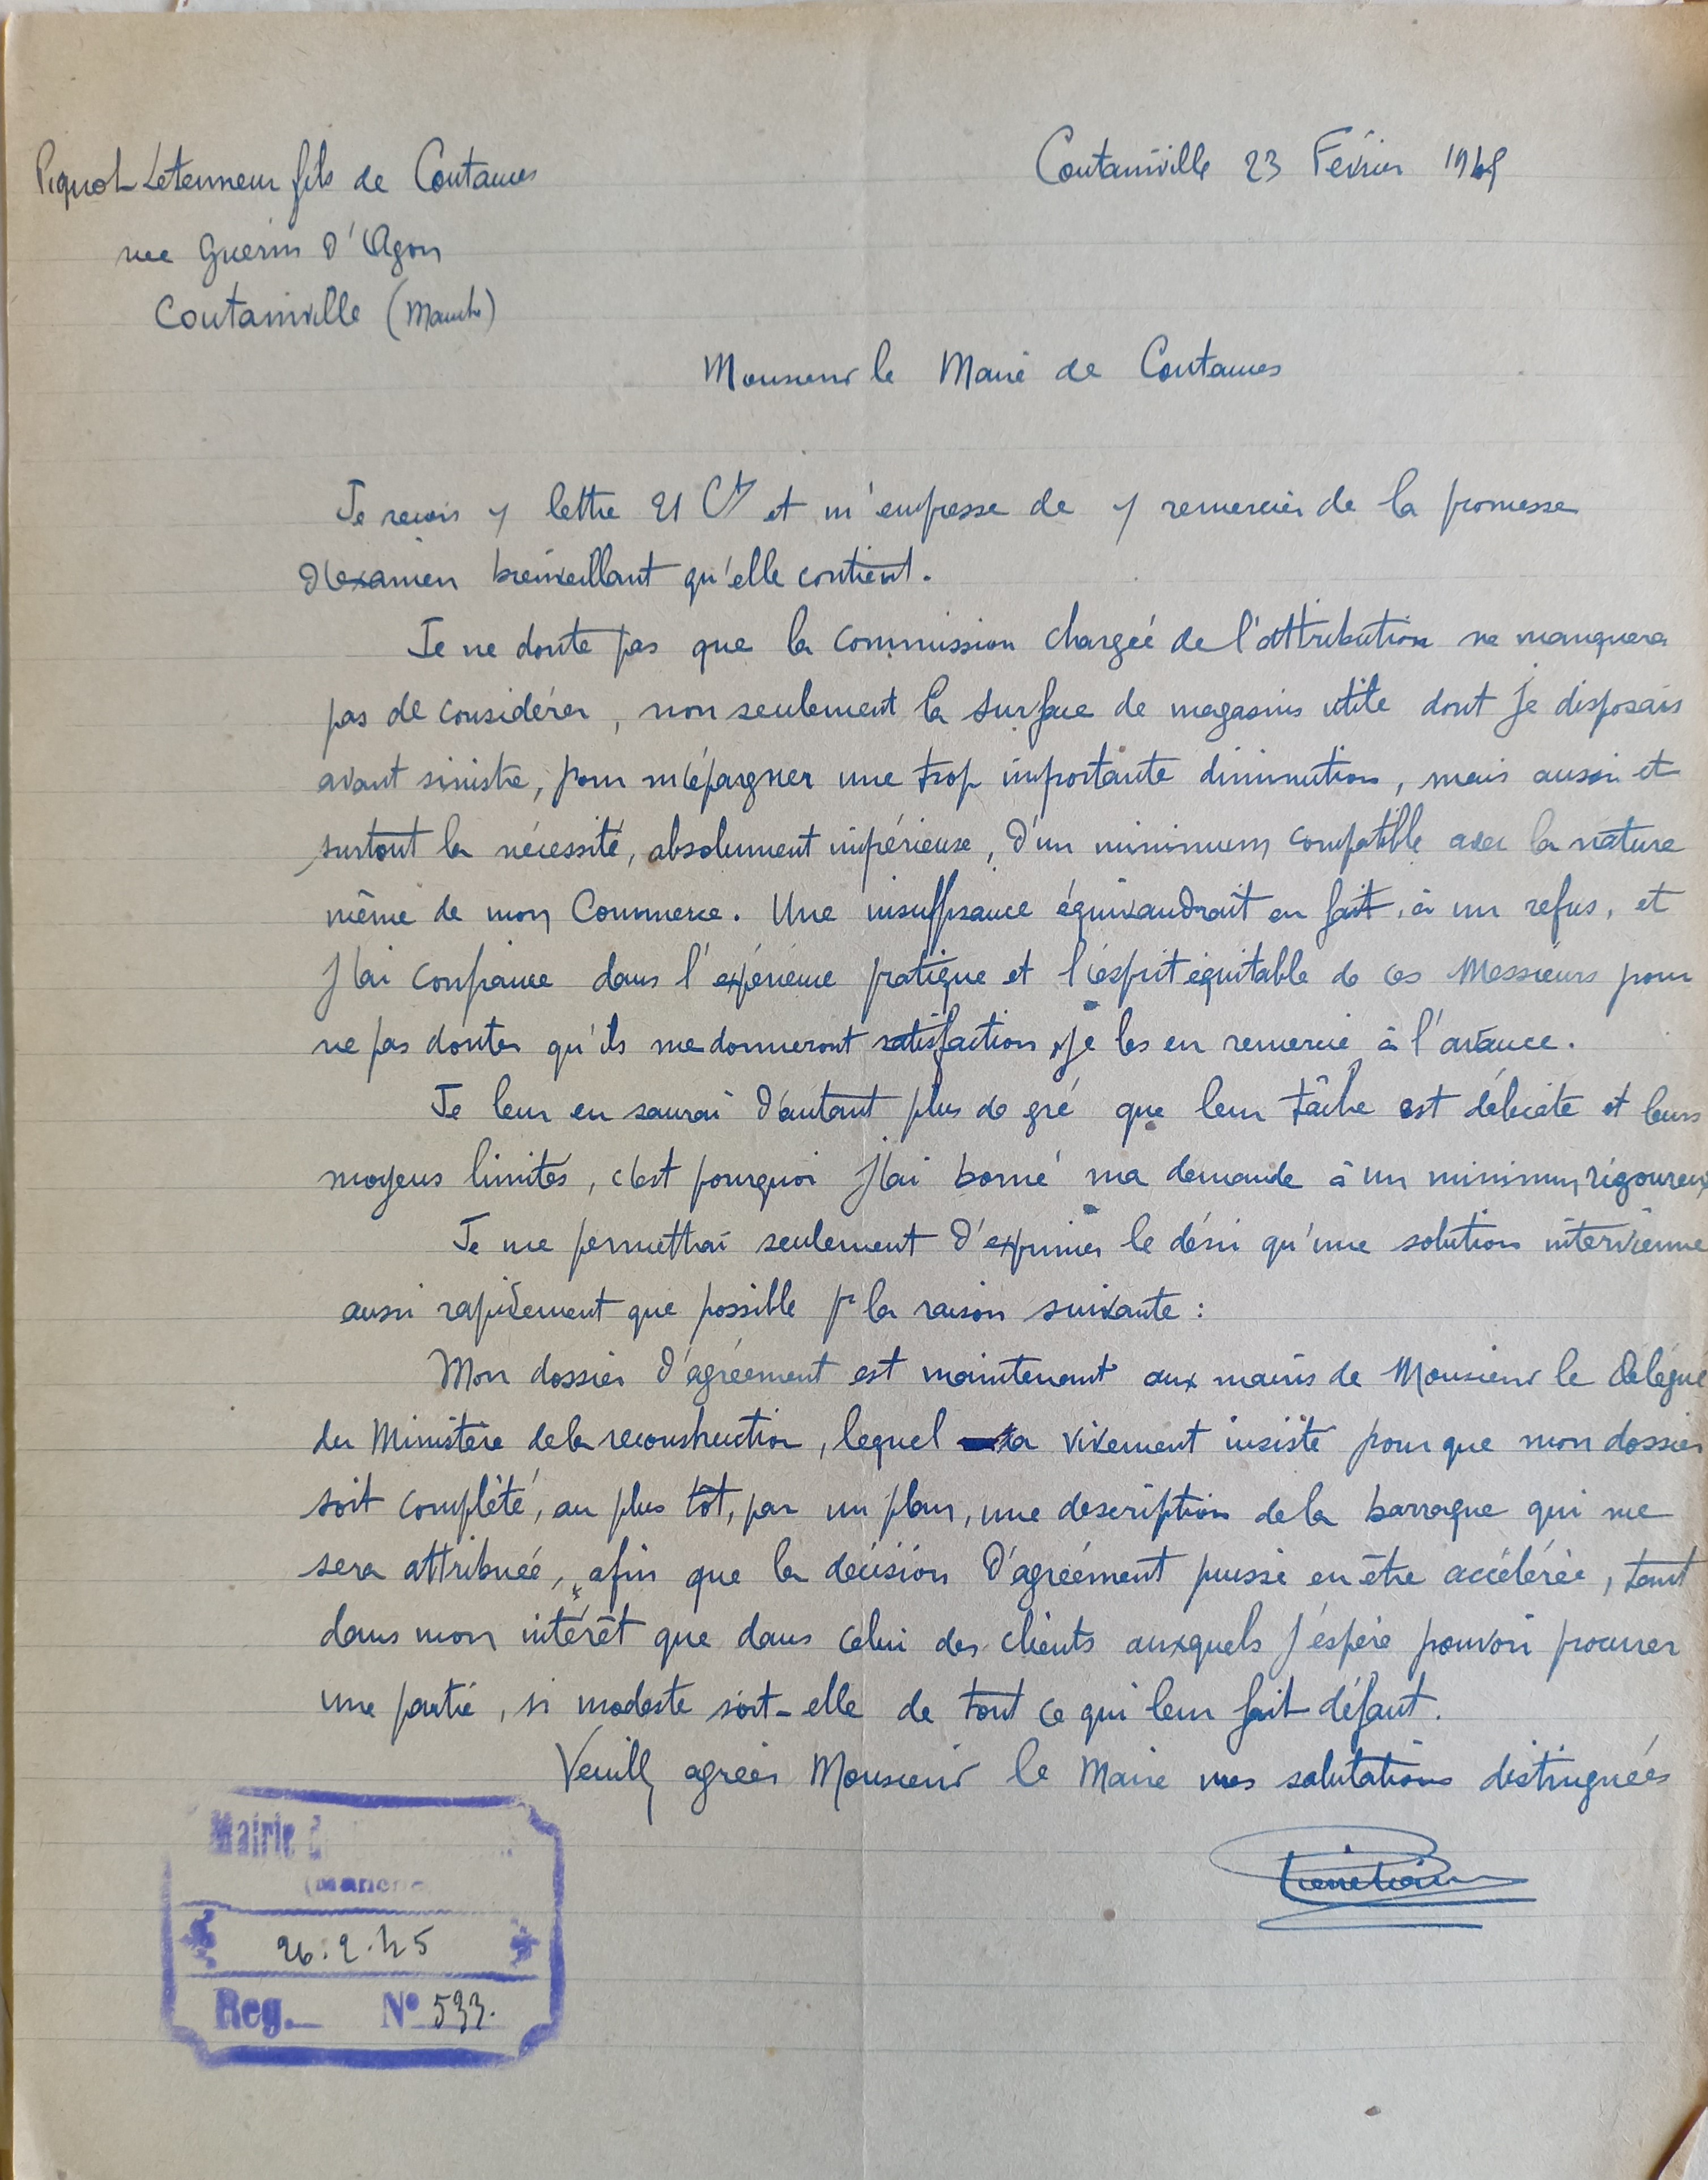 Piquot Letenneur fils de Coutances
rue Guerin d'Agon
Coutainville (Manche)
Coutainville 23 Février 1945
Monsieur le Maire de Coutances
Je reçois lettre 21 Ct et m'empresse de remercier de la promesse
d'examen bienveillant qu'elle contient.
Je ne doute pas que la commission chargée de l'attribution ne manquera
pas de considérer, non seulement la surface de magasins utile dont je disposais
avant sinistre, pour m'épargner une trop importante diminution, mais aussi et
surtout la nécessité, absolument impérieuse, d'un minimum compatible avec la nature
même de mon Commerce. Une insuffisance équivaudrait en fait, à un refus, et
J'ai confiance dans l'expérience pratique et l'esprit équitable de ces Messieurs pour
ne pas douter qu'ils me donneront satisfaction, je les en remercie à l'avance.
Je leur en saurai d'autant plus de gré que leur tâche est délicate et leurs
moyens limités, c'est pourquoi j'ai borné ma demande à un minimum rigoureux
Je me permettrai seulement d'exprimer le désir qu'une solution intervienne
aussi rapidement que possible pr la raison suivante :
Mon dossier d'agréement est maintenant aux mains de Monsieur le Délégué
du Ministère de la reconstruction, lequel a vivement insisté pour que mon dossier
soit complété, au plus tôt, par un plan, une description de la barraque qui me
sera attribuée, afin que la décision d'agréement puisse en être accélérée, tant
dans mon intérêt que dans celui des clients auxquels j'espère pouvoir procurer
une partie, si modeste soit-elle de tout ce qui leur fait défaut.
Veuillez agréer Monsieur le Maire mes salutations distinguées
Mairie d
(Manche
26.2.45
Reg. N° 533.